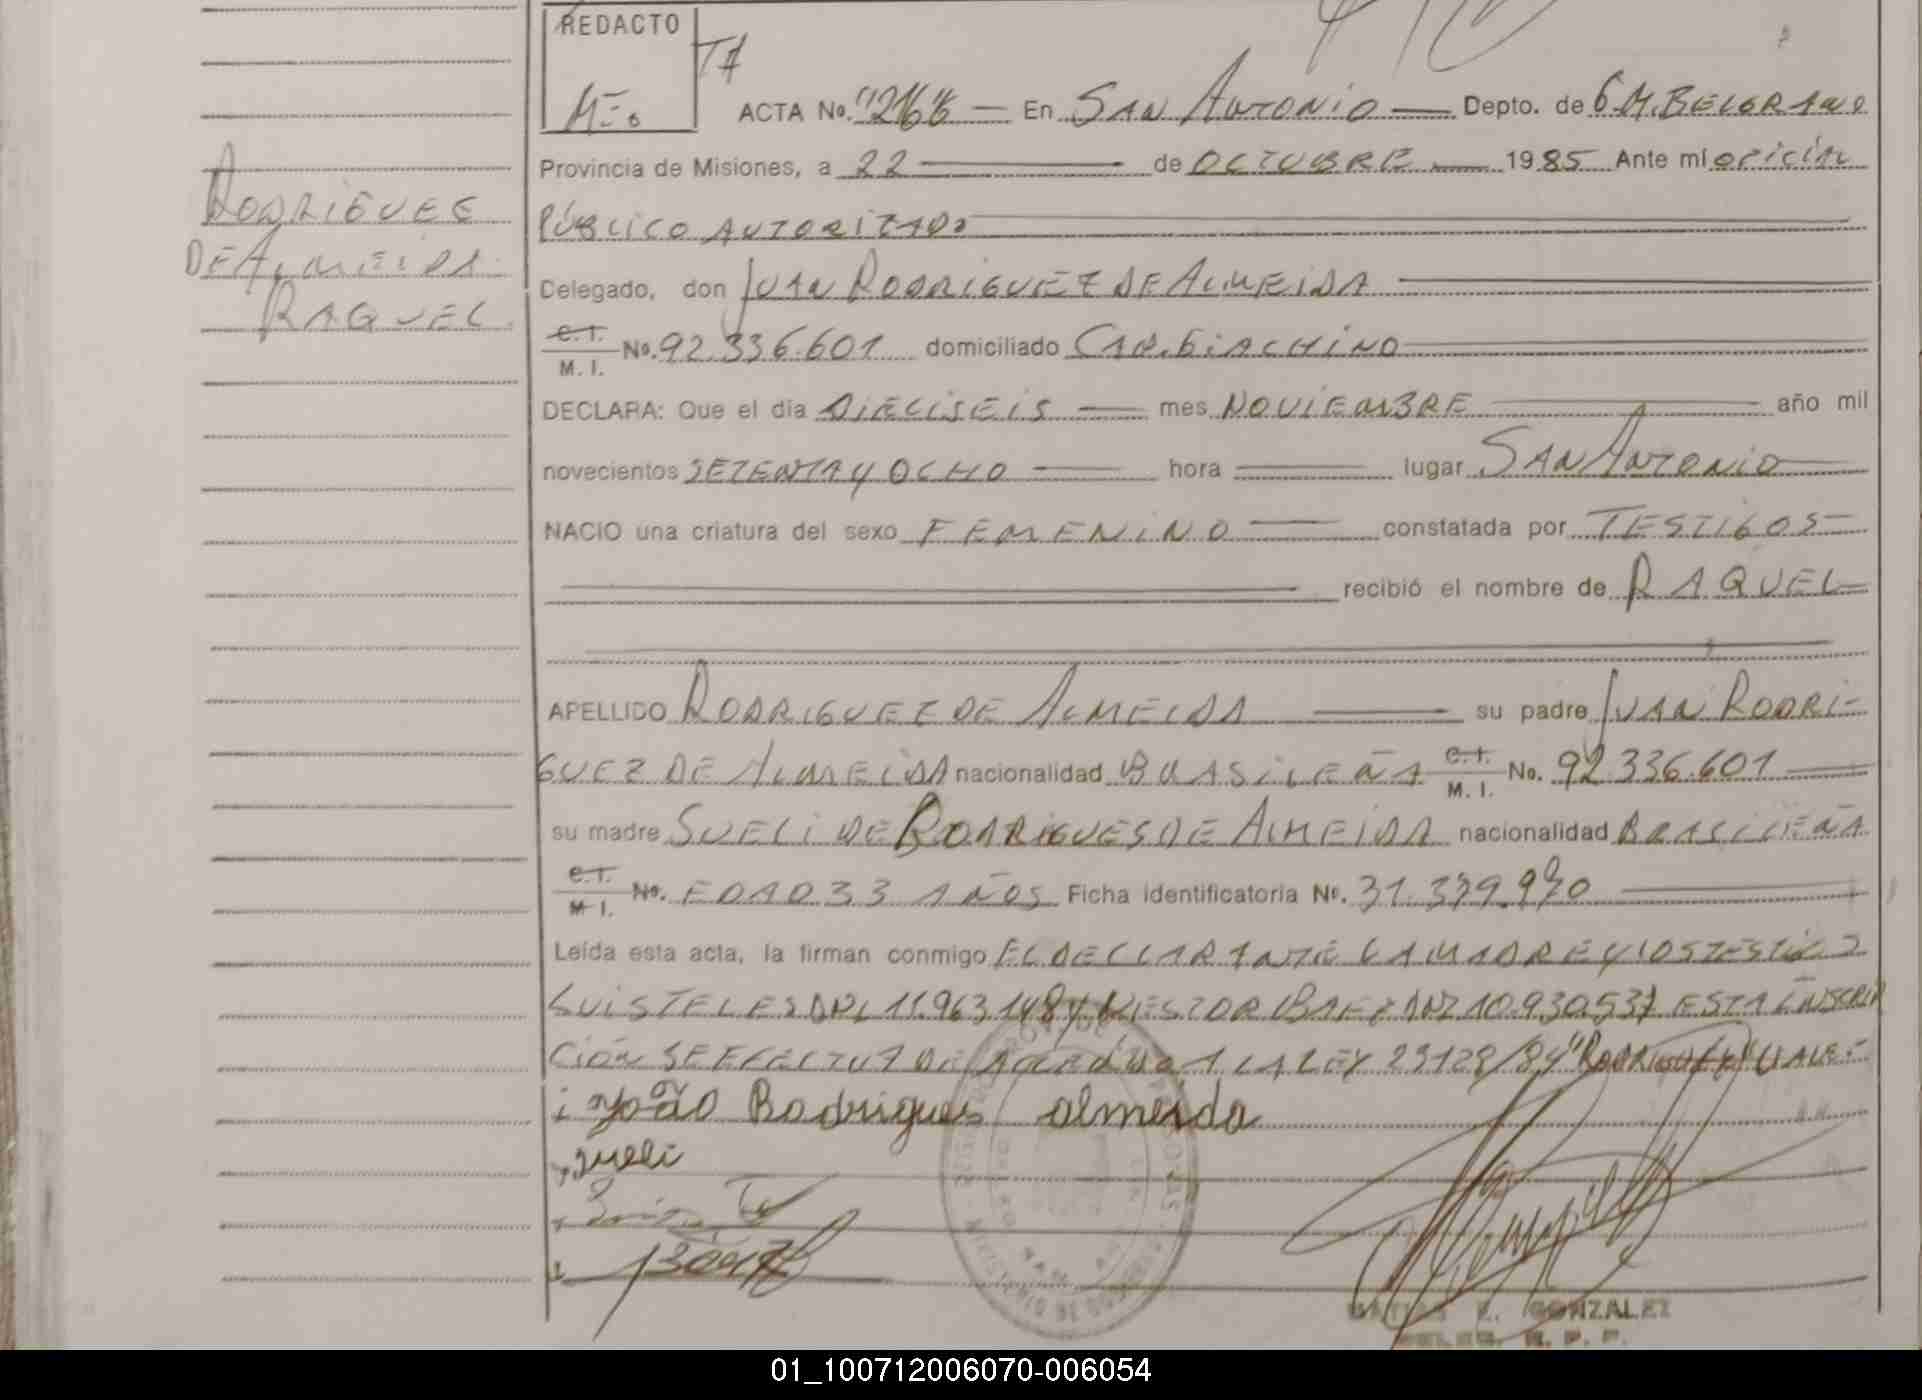 REDACTO
ACTA No. "266" — En SAN ANTONIO — Depto. de G.M. BELGRANO
Provincia de Misiones, a 22 — de OCTUBRE — 1985 Ante mi OFICIAL
PÚBLICO AUTORIZADO
RODRIGUEZ
DE ALMEIDA
RAQUEL
Delegado, don JUAN RODRIGUEZ DE ALMEIDA
C.I. M.I. No. 92.336.601 domiciliado CAP. GIACHINO
DECLARA: Que el día DIECISEIS — mes NOVIEMBRE — año mil
novecientos SETENTA Y OCHO — hora — lugar SAN ANTONIO
NACIO una criatura del sexo FEMENINO — constatada por TESTIGOS
recibió el nombre de RAQUEL
APELLIDO RODRIGUEZ DE ALMEIDA — su padre JUAN RODRI-
GUEZ DE ALMEIDA nacionalidad BRASILEÑA C.I. M.I. No. 92.336.601
su madre SUELI DE RODRIGUES DE ALMEIDA nacionalidad BRASILEÑA
C.I. M.I. No. EDAD 33 AÑOS Ficha identificatoria No. 31.379.970
Leída esta acta, la firman conmigo EL DECLARANTE LA MADRE Y LOS TESTIGOS
LUIS TELES DNI 11.963.148 Y NESTOR BAEZ DNI 10.930.537 ESTA INSCRIP
CIÓN SE EFECTUA DE ACUERDO A LA LEY 23128/84 "RODRIGUEZ" VALE-
João Rodrigues almeida
sueli
GONZALEZ
01_100712006070-006054